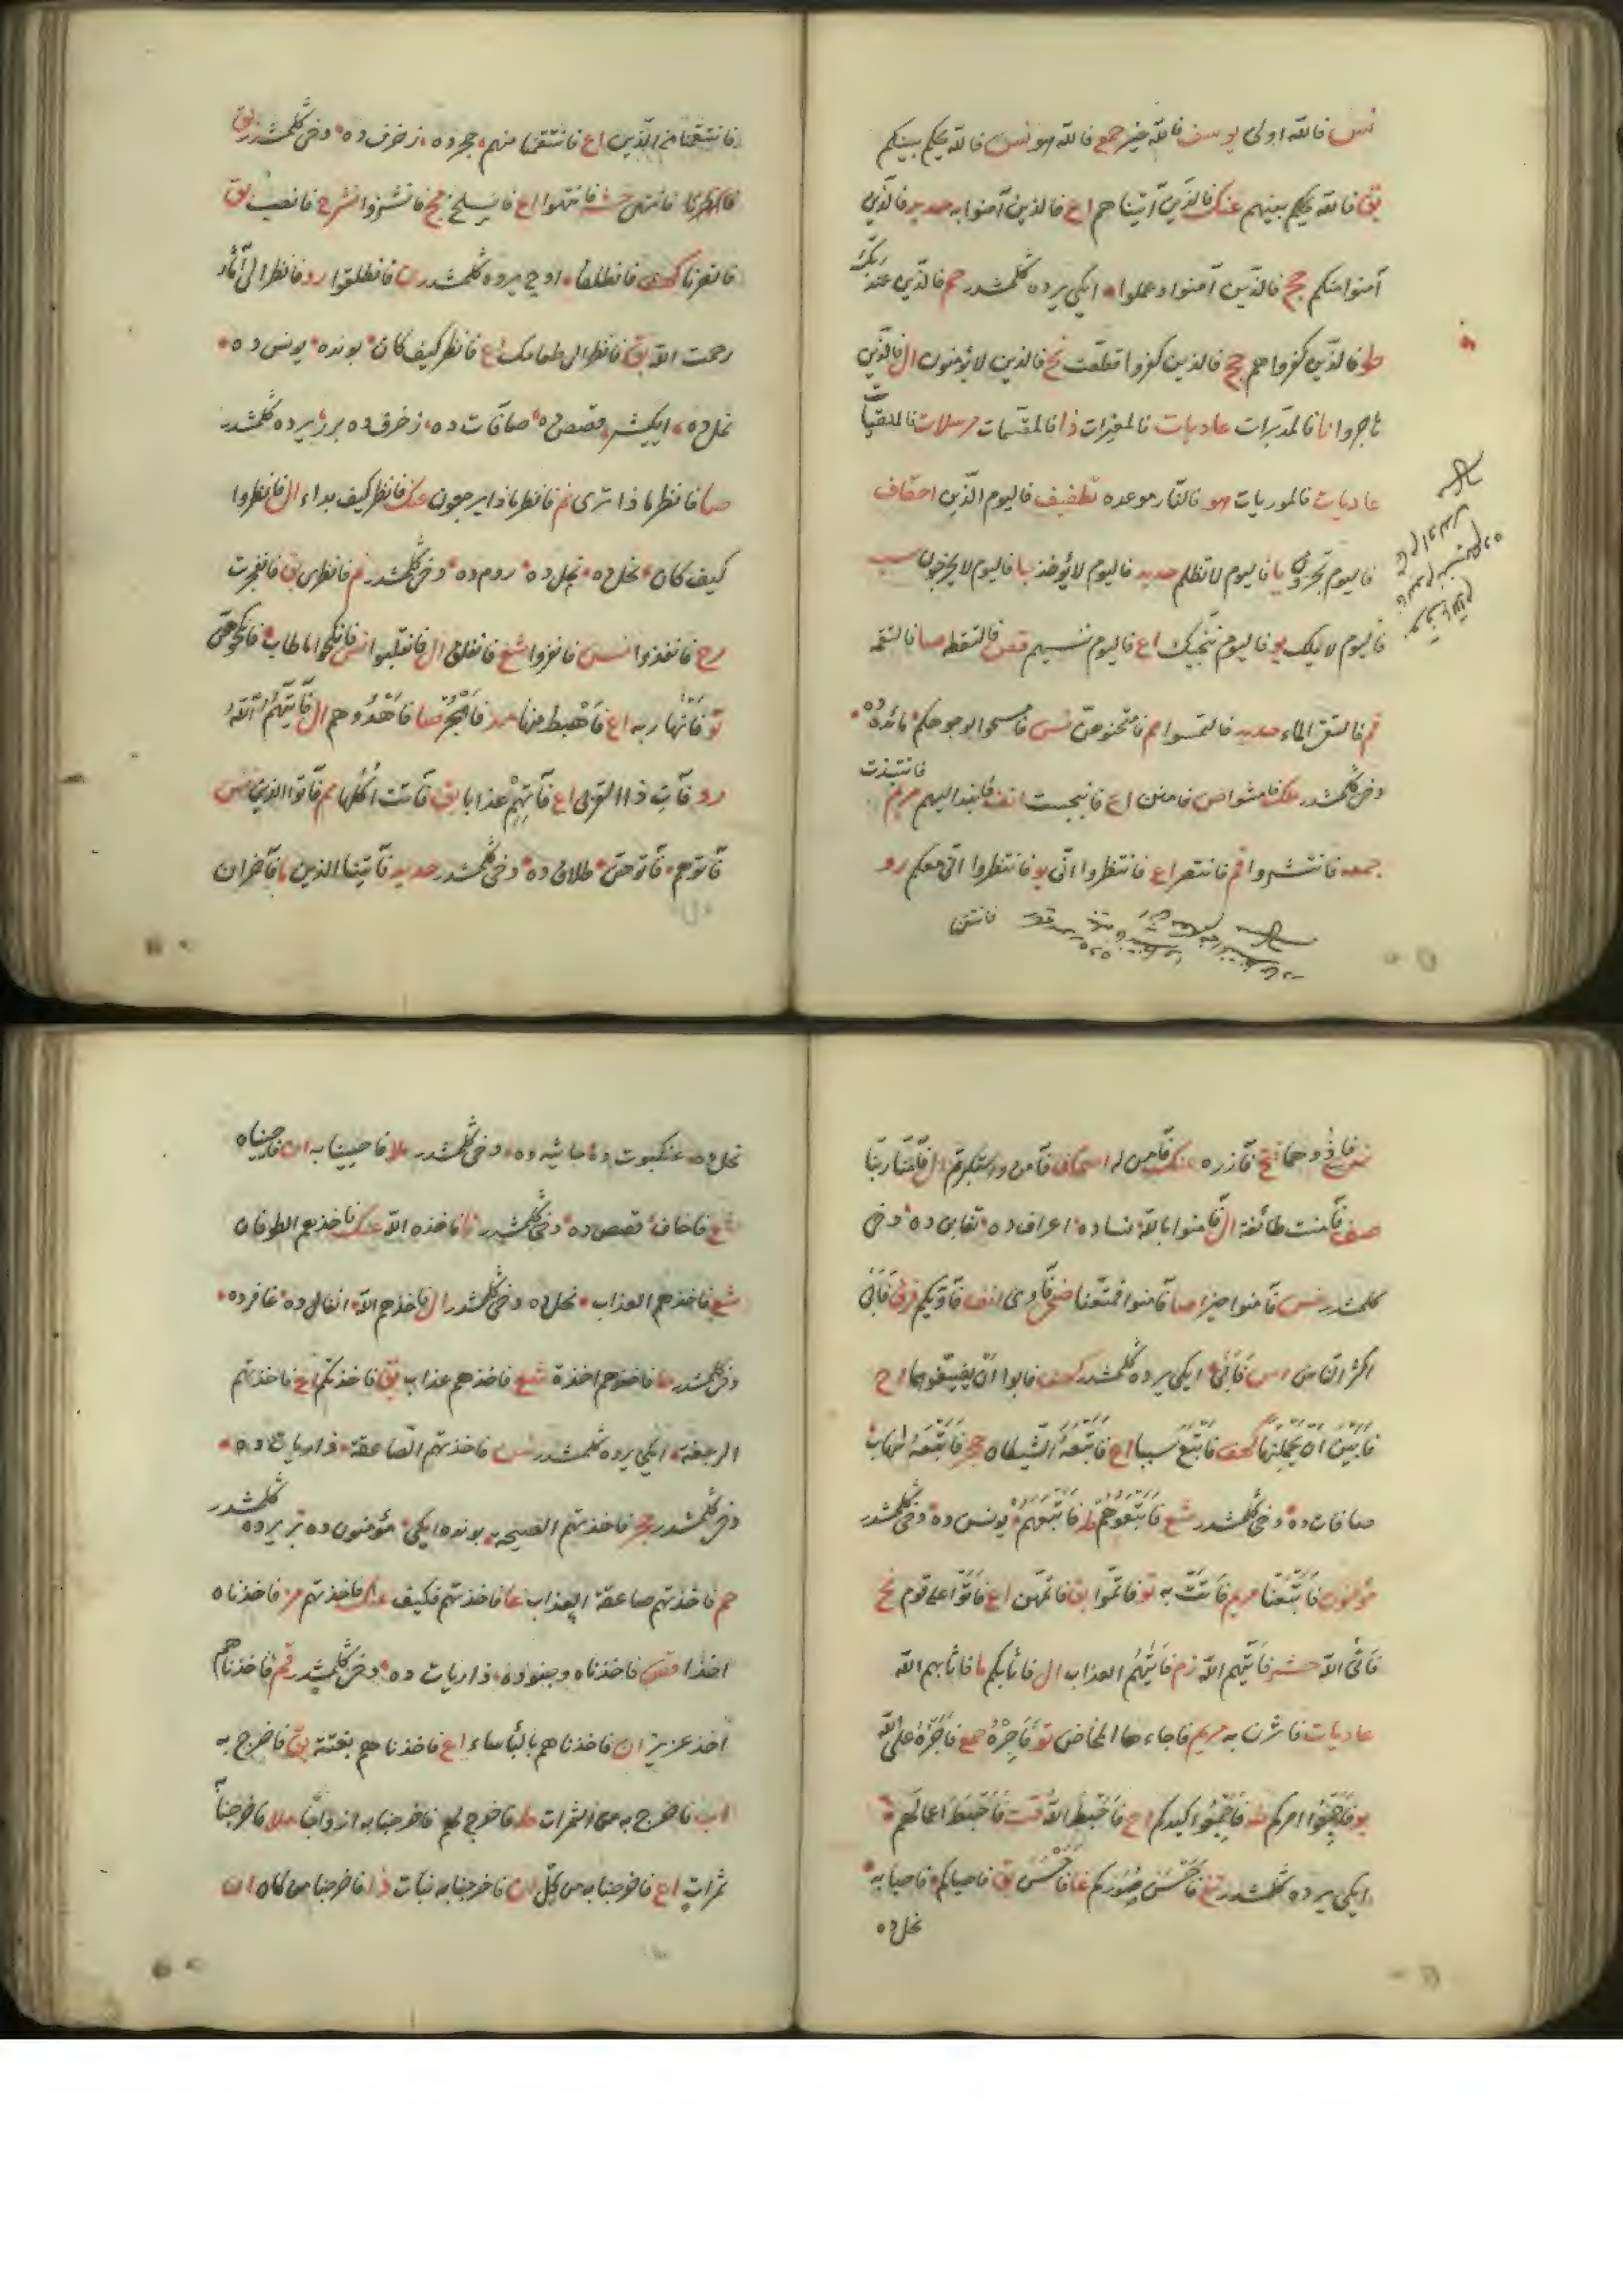 نس فالله اولى يوسف فالله خير جمع فالله هو نس فالله يحكم بينكم
بق فالله يحكم بينهم عنك فالذين آتيناهم اع فالذين آمنوا به حديد فالذين
آمنوا منكم حج فالذين آمنوا وعملوا ايكى يرده كلمشدر حم فالذين عند ربك
فالذين كفروا هم حج فالذين كفروا قطعت نح فالذين لا يؤمنون ال فالذين
هاجروا نا فالمدبرات عاديات فالمغيرات ذا فالمقسمات مرسلات فالملقيات
عاديات فالموريات هو فالنار موعده تطفيف فاليوم الذين احقاف
فاليوم تجزون يا فاليوم لا تظلم حديد فاليوم لا يؤخذ جا فاليوم لا يخرجون سب
فاليوم لا يملك يو فاليوم ننجيك اع فاليوم ننسيهم قص فالتقطه صا فالتقمه
قم فالتقى الماء حديد فالتمسوا مم فامتحنوهن نس فامسحوا بوجوهكم مائده ده
دخى كلمشدر ملك فامشوا ص فامنن اع فانبجست انف فانبذ اليهم مريم فانتبذت
جمعه فانتشروا قم فانتصر اع فانتظروا انى يو فانتظروا انى معكم رو
فانتقمنا
فانتقمنا من الذين اع فانتقمنا منهم حجرده زخرف ده دخى كلمشدر بق
فانتهى حشر فانتهوا اع فانسلخ مج فانشزوا شرح فانصب بق
فانصرنا كهف فانطلقا اوچ يرده كلمشدر ن فانطلقوا رو فانظر الى آثار
رحمت الله بق فانظر الى طعامك اع فانظر كيف كان بونده يونس ده
نمل ده ايكيشر قصص ده صافات ده زخرف ده برر يرده كلمشدر
صا فانظر ماذا ترى نم فانظر ماذا يرجعون عنك فانظر كيف بداء ال فانظروا
كيف كان نحل ده نمل ده روم ده دخى كلمشدر نم فانظرى بق فانفجرت
رح فانفذوا نس فانفروا شع فانفلق ال فانقلبوا نس فانكحوا ما طاب فانكحوهن
تو فانهار به اع فاهبط منها مد فاهجر صا فاهدوهم ال فآتيهم الله
رو فآت ذا القربى اع فآتهم عذابا بق فآتت اكلها مم فآتوا الذين نس
فآتوهم فآتوهن طلاق ده دخى كلمشدر حديد فآتينا الذين ما فآخران
نس فآذوهما فتح فآزره عنك فآمن له احقاف فآمن واستكبرتم ال فآمنا ربنا
صف فآمنت طائفة ال فآمنوا بالله نساده اعراف ده تغابن ده دخى
كلمشدر نس فآمنوا خيرا صا فآمنوا فمتعنا ضحى فآوى انف فآويكم فرق فابى
اكثر الناس اس فابى ايكى يرده كلمشدر كهف فابوا ان يضيفوهما اح
فابين ان يحملنها كهف فاتبع سببا اع فاتبعه الشيطان حجر فاتبعه شهاب
صافات ده دخى كلمشدر شع فاتبعوهم طه فاتبعهم يونس ده دخى كلمشدر
مؤمنون فاتبعنا مريم فاتت به تو فاتموا بق فاتمهن اع فاتوا على قوم نح
فاتى الله حشر فاتيهم الله زم فاتيهم العذاب ال فاثابكم ما فاثابهم الله
عاديات فاثرن به مريم فاجاءها المخاض تو فاجره جمع فاجره على الله
يو فاجمعوا امركم طه فاجمعوا كيدكم اح فاحبط الله قت فاحبط اعمالهم
ايكى يرده كلمشدر تغ فاحسن صوركم غا فاحسن بق فاحياكم فاحيا به
نحل ده
نحل ده عنكبوت ده جاثيه ده دخى كلمشدر ملا فاحيينا به ان فاحييناه
شع فاخاف قصص ده دخى كلمشدر نا فاخذه الله عنك فاخذهم الطوفان
شع فاخذهم العذاب نحل ده دخى كلمشدر ال فاخذهم الله انفال ده غافرده
دخى كلمشدر حا فاخذهم اخذة شع فاخذهم عذاب بق فاخذتكم اع فاخذتهم
الرجفة ايكى يرده كلمشدر نس فاخذتهم الصاعقة ذاريات ده
دخى كلمشدر حجر فاخذتهم الصيحه بونده ايكى مؤمنون ده بر يرده كلمشدر
حم فاخذتهم صاعقة العذاب غا فاخذتهم فكيف عنك فاخذتهم مز فاخذناه
اخذا قص فاخذناه وجنوده ذاريات ده دخى كلمشدر قم فاخذناهم
اخذ عزيز ان فاخذناهم بالبأساء اع فاخذناهم بغتة بق فاخرج به
اب فاخرج به من الثمرات طه فاخرج لهم فاخرجنا به ازواجا ملا فاخرجنا
ثمرات اع فاخرجنا به من كل ان فاخرجنا به نبات ذا فاخرجنا من كان ان